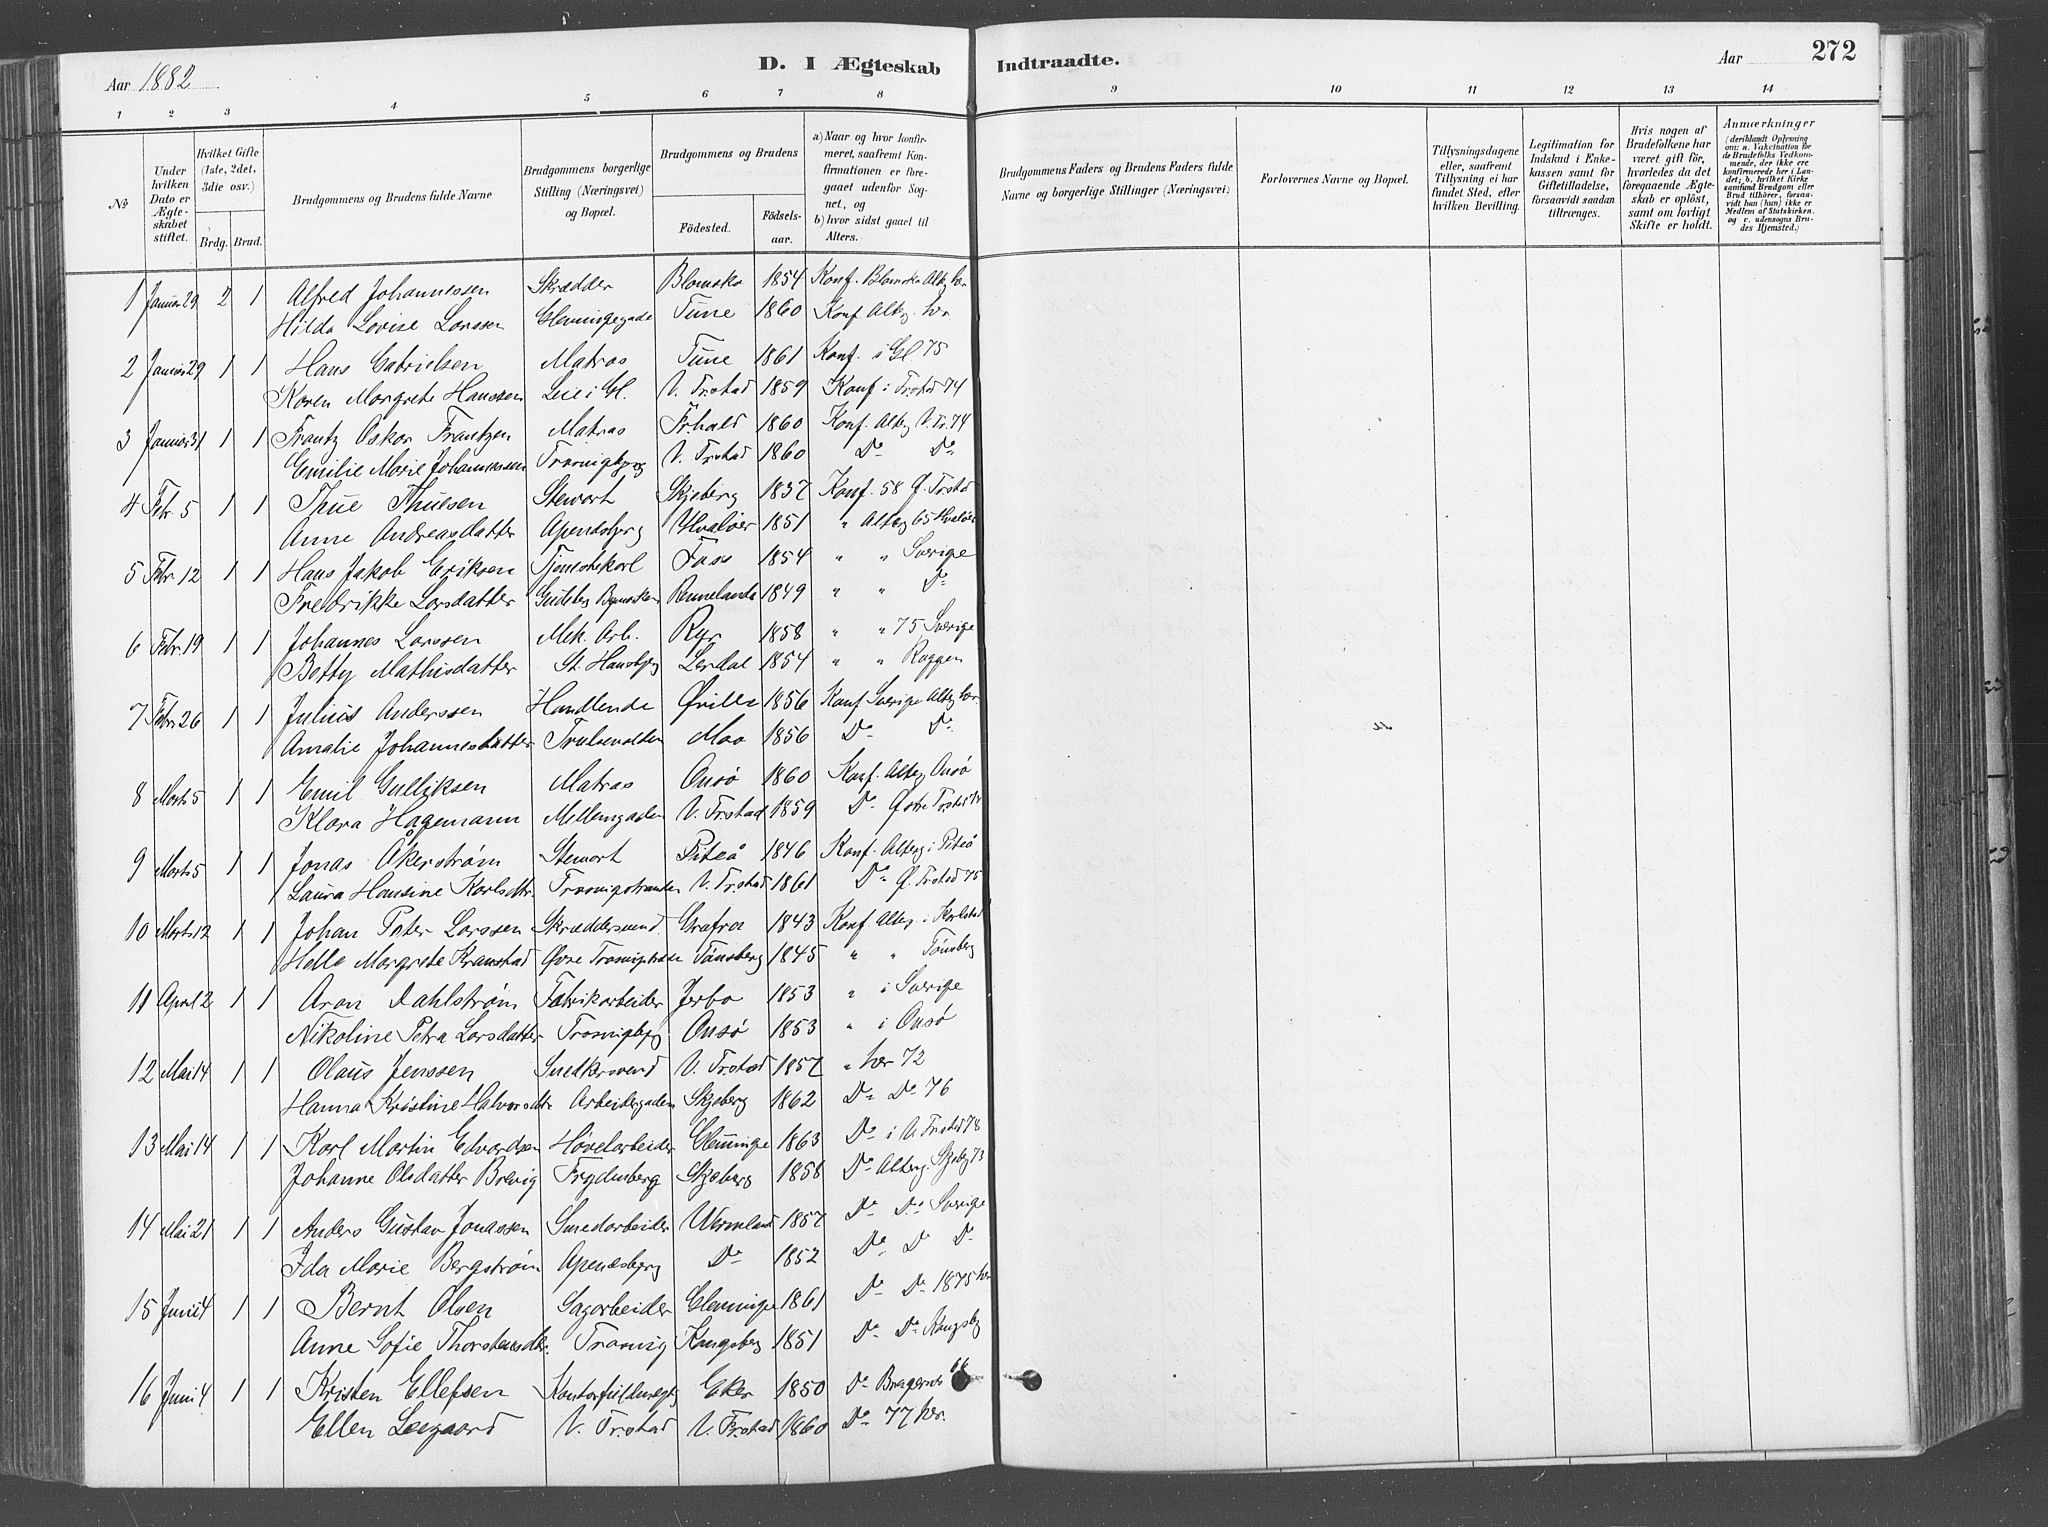 Aar 1882
D. I Ægteskab Indtraadte.
Aar 272
1 2 3 4 5 6 7 8 9 10 11 12 13 14
No
Under hvilken Dato er Ægteskabet stiftet.
Hvilket Gifte (1ste, 2det, 3die osv.)
Brdg. Brud.
Brudgommens og Brudens fulde Navne
Brudgommens borgerlige Stilling (Næringsvei) og Bopæl.
Brudgommens og Brudens
Fødested. Fødselsaar.
a) Naar og hvor konfirmeret, saafremt Konfirmationen er foregaaet udenfor Sognet, og
b) hvor sidst gaaet til Alters.
Brudgommens Faders og Brudens Faders fulde Navne og borgerlige Stillinger (Næringsvei).
Forlovernes Navne og Bopæl.
Tillysningsdagene eller, saafremt Tillysning ei har fundet Sted, efter hvilken Bevilling.
Legitimation for Indskud i Enkekassen samt for Giftetilladelse, forsaavidt saadan tiltrænges.
Hvis nogen af Brudefolkene har været gift før, hvorledes da det foregaaende Ægteskab er opløst, samt om lovligt Skifte er holdt.
Anmærkninger (deriblandt Oplysning om: a. Vakcination for de Brudefolks Vedkommende, der ikke ere konfirmerede her i Landet; b. hvilket Kirkesamfund Brudgom eller Brud tilhører, forsaavidt han (hun) ikke er Medlem af Statskirken, og c. udensogns Brudes Hjemsted.)
1 Januar 29 2 1 Alfred Johannessen Skrædder Blomsko 1854 Konf. Blomsko Altg her
Hilda Lovise Larssen Glemmigegade Tune 1860 Konf Altg. her
2 Januar 29 1 1 Hans Gabrielsen Matros Tune 1861 Konf. i Gl. 75
Karen Margrete Hanssen Leie i Gl. V. Fr.stad 1859 Konf i Fr.stad 74
3 Januar 31 1 1 Frantz Oskar Frantzen Matros Fr.hald 1860 Konf. Altg V. Fr. 74
Emilie Marie Johannessen Trosvigbyg V. Fr.stad 1860 Do Do
4 Febr. 5 1 1 Thue Thuesen Stewart Skjeberg 1837 Konf. 58 G. Fr.std
Anne Andreasdatter Apenæsbyrg Hvaløer 1851 " Altg 65 Hvaløer
5 Febr. 12 1 1 Hans Jakob Eriksen Tjenestekarl Foss 1854 " " Sverige
Fredrikke Larsdatter 1849 " " Do
6 Febr. 19 1 1 Johannes Larssen Mek. Arb. Ryr 1858 " " 75 Sverige
Betty Mathisdatter St. Hansbyg Lerdal 1854 " " Roggen
7 Febr 26 1 1 Julius Anderssen Handlende Qville 1856 Konf Sverige Altg her
Amalie Johannesdatter Moo 1856 Do Do
8 Marts 5 1 1 Emil Gulliksen Matros Onsø 1860 Konf. Altg Onsø
Klara Hagemann Mellemgaden V. Fr.stad 1859 Do
9 Marts 5 1 1 Jonas Åkerstrøm Stewart Piteå 1846 Konf. Altg i Piteå
Laura Hansine Karlsdtr. Trosvigstranden V. Fr.stad 1861 Do G. Fr.stad 75
10 Marts 12 1 1 Johan Peter Larssen Skræddersvend Grafva 1843 Konf Altg. i Karlstad
Helle Margrete Kranstad Tønsberg 1845 " " Tønsberg
11 April 2 1 1 Aron Dahlstrøm Fabrikarbeider Jerbo 1853 " i Sverige
Nikoline Petra Larsdatter Trosvigbyg Onsø 1853 " i Onsø
12 Mai 14 1 1 Olaus Jenssen Snedkersvend V. Fr.stad 1857 " her 72
Hanna Kristine Halvorsdtr Arbeidergaden Skjeberg 1862 Do Do 76
13 Mai 14 1 1 Karl Martin Edvardsen Høvelarbeider Glemminge 1863 Do i V. Fr.stad 78
Johanne Olsdatter Brevig Frydenberg Skjeberg 1858 Do Altbg. Skjebg 73
14 Mai 21 1 1 Anders Gustav Jonassen Smedarbeider Wermland 1857 Do Do Sverige
Ida Marie Bergstrøm Apenæsbyrg Do 1852 Do Do Do
15 Juni 4 1 1 Bernt Olsen Sagarbeider Glemminge 1861 Do Do 1875 her
Anne Sofie Thorstensdtr. Trosvig Kongsberg 1851 Do Do Kongsbg
16 Juni 4 1 1 Kristen Ellefsen Kontorfuldmægtig Eker 1850 Do Bragernes 66
Ellen Leegaard V. Fr.stad V. Fr.stad 1860 Do 77 her.